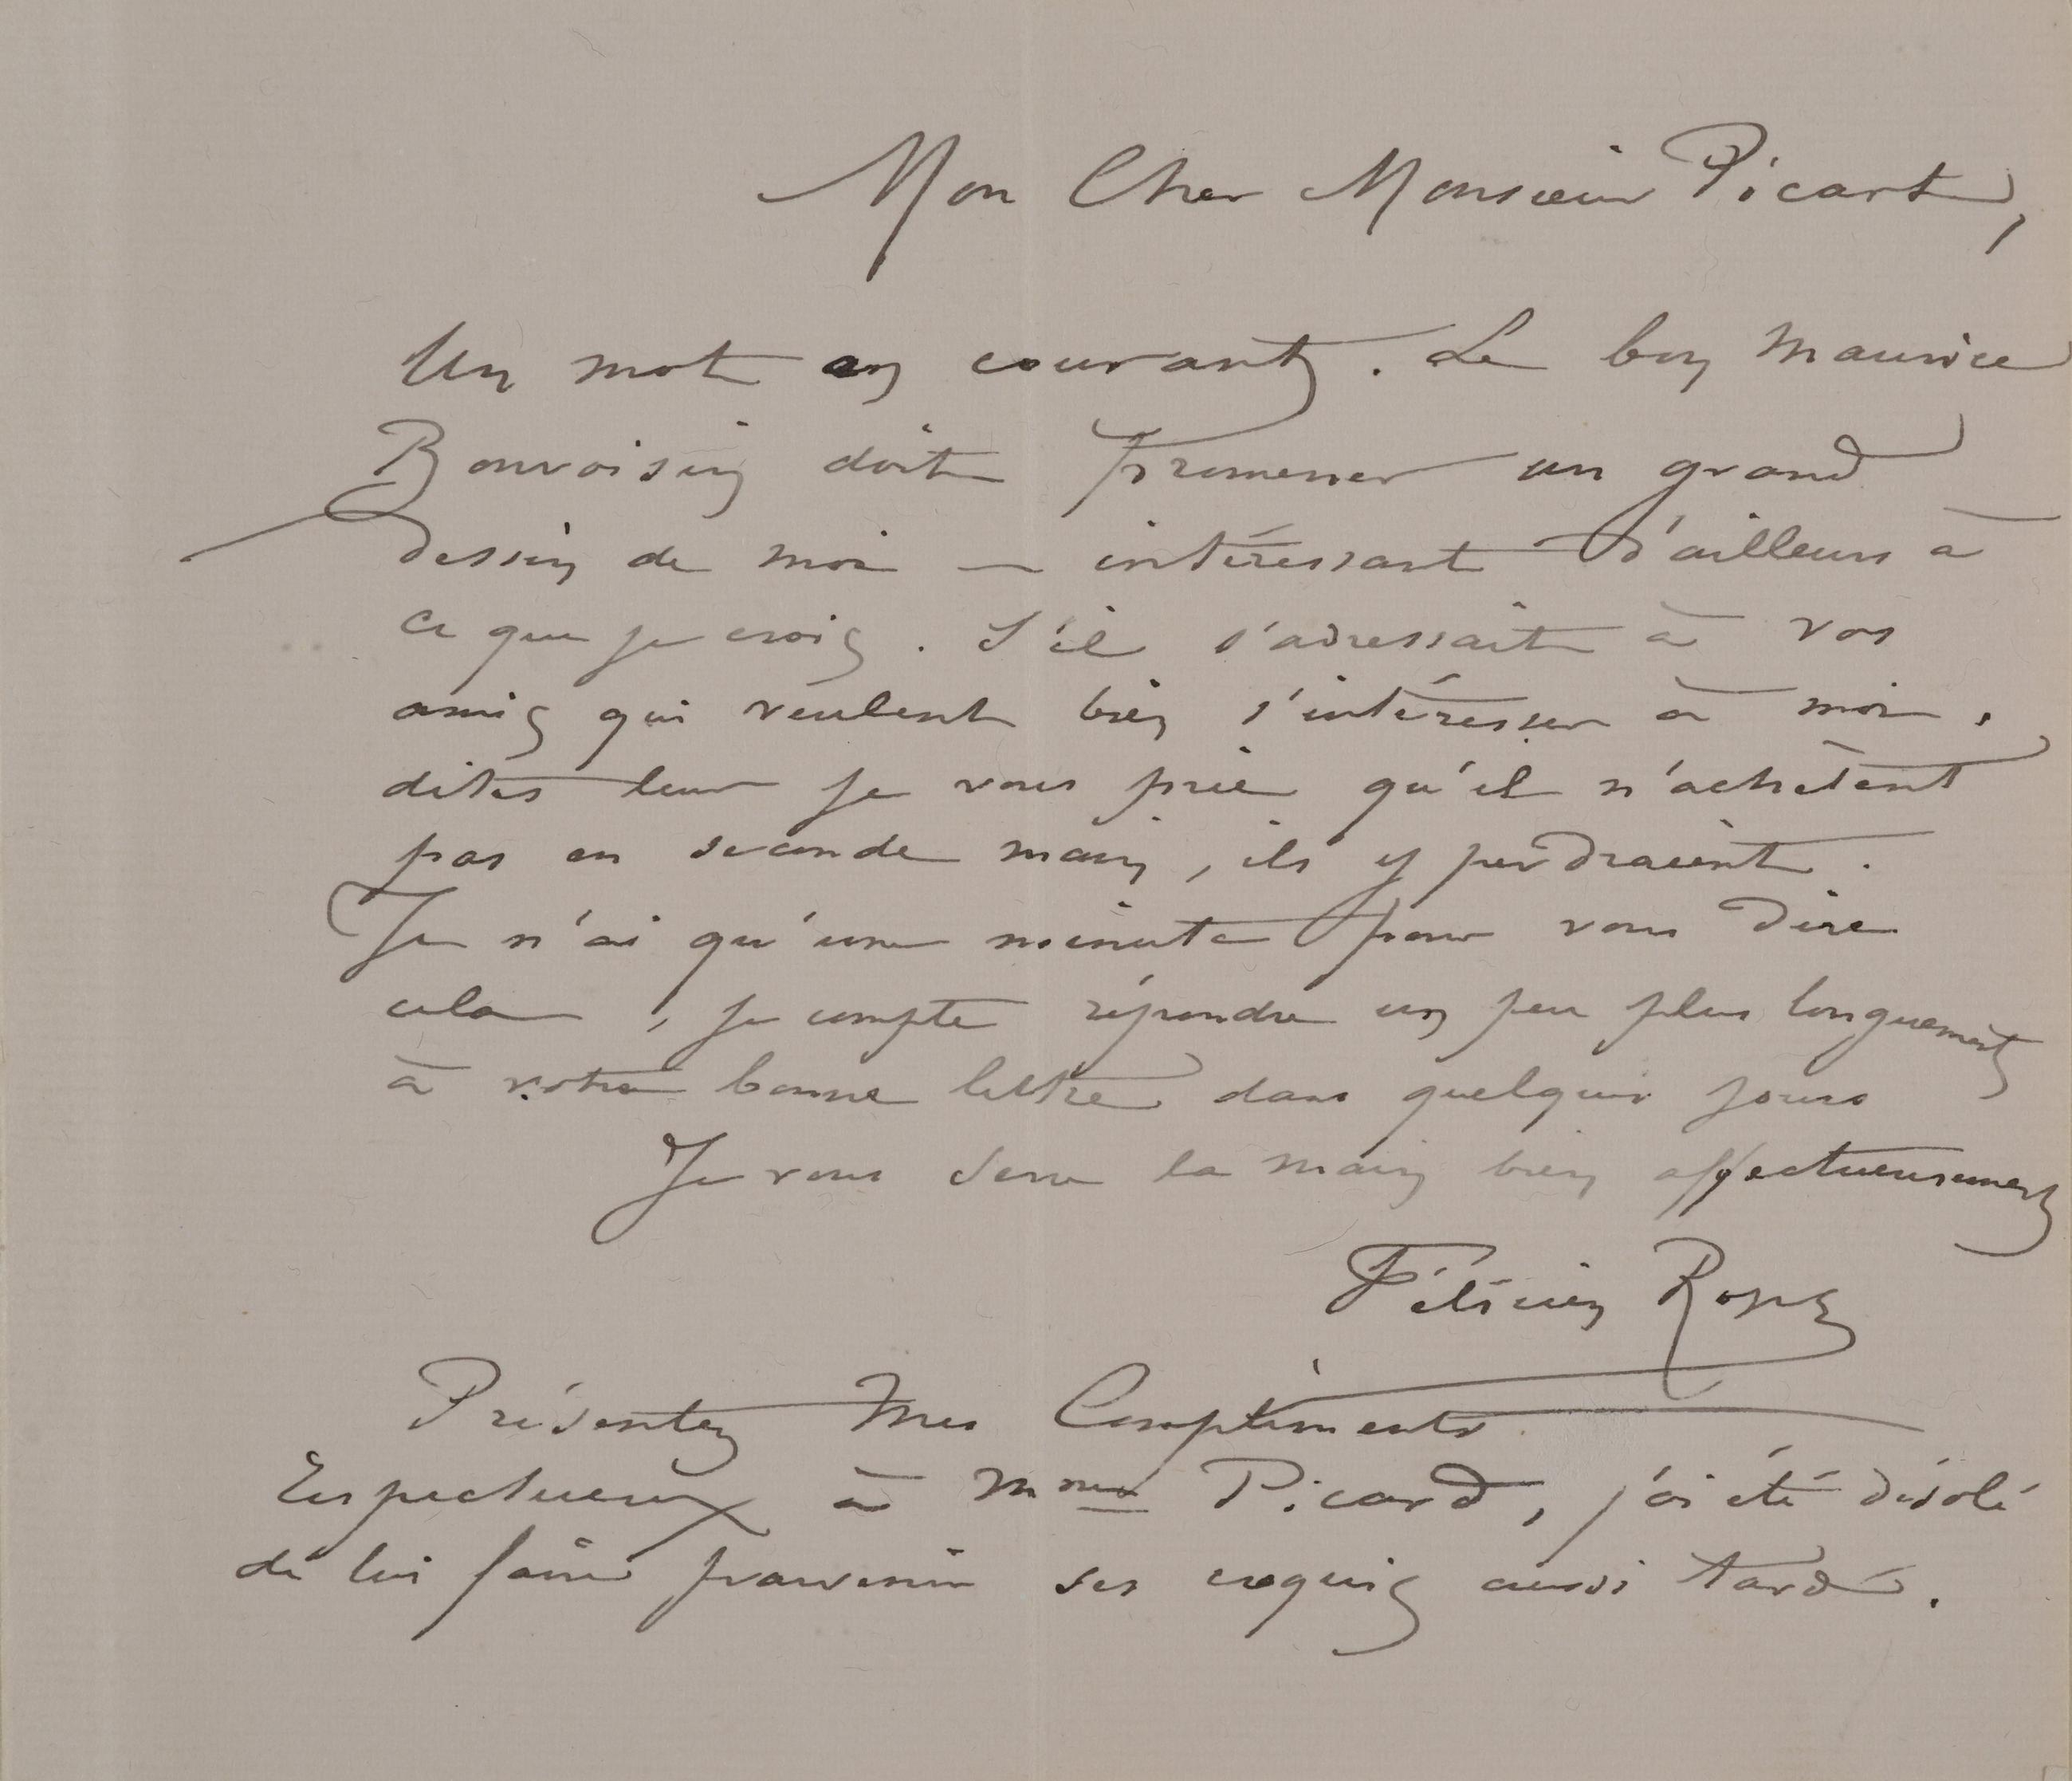 Mon Cher Monsieur Picart,
Un mot en courant. Le bon Maurice
Bonvoisin doit promener un grand
dessin de moi — intéressant d'ailleurs à
ce que je crois. S'il s'adressait à vos
amis qui veulent bien s'intéresser à moi,
dites leur je vous prie qu'il n'achètent
pas en seconde main, ils y perdraient.
Je n'ai qu'une minute pour vous dire
cela, je compte répondre un peu plus longuement
à votre bonne lettre dans quelques jours
Je vous serre la main bien affectueusement
Félicien Rops
Présentez mes Compliments
Respectueux à Mme Picard, j'ai été désolé
de lui faire parvenir ses croquis aussi tard.